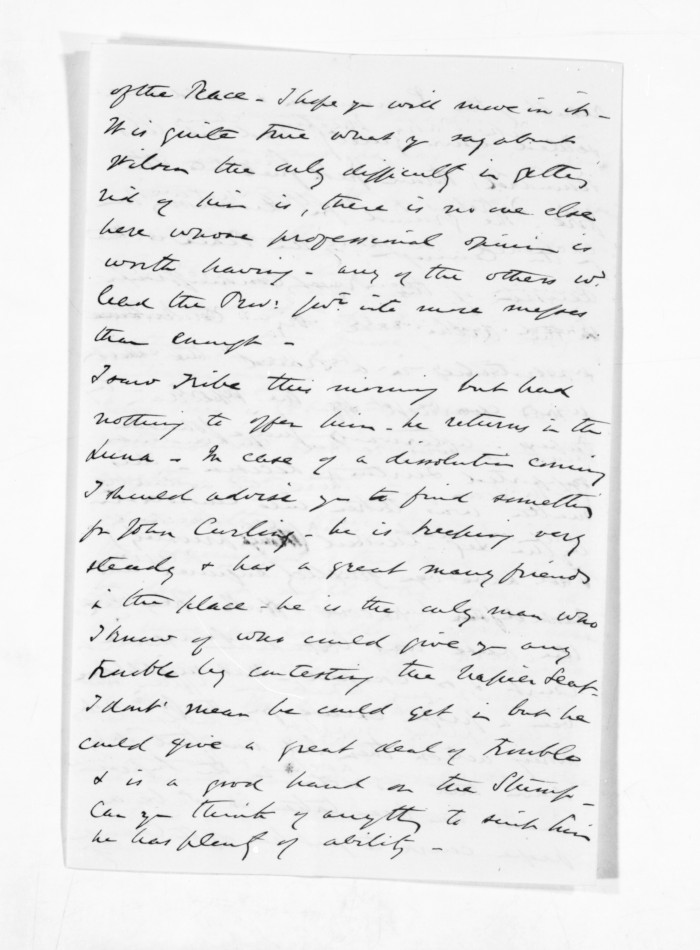 of the Peace - I hope yr will move in it -
It is quite true what y say about
Wilson the only difficulty in getting
rid of him is, there is no one else
here whose professional opinion is
worth having - any of the others wd.
lead the Prov: Govt. into more messes
than enough -
I saw Tribe this morning but had
nothing to offer him - he returns in the
Luna - In case of a dissolution coming
I should advise yr to find something
for John Curling - he is keeping very
steady & has a great many friends
in the place - he is the only man who
I know of who could give yr any
trouble by contesting the Napier Seat -
I don't mean he could get in but he
could give a great deal of trouble
& is a good hand on the Stump -
Can yr think of anythg to suit him
he has plenty of ability -